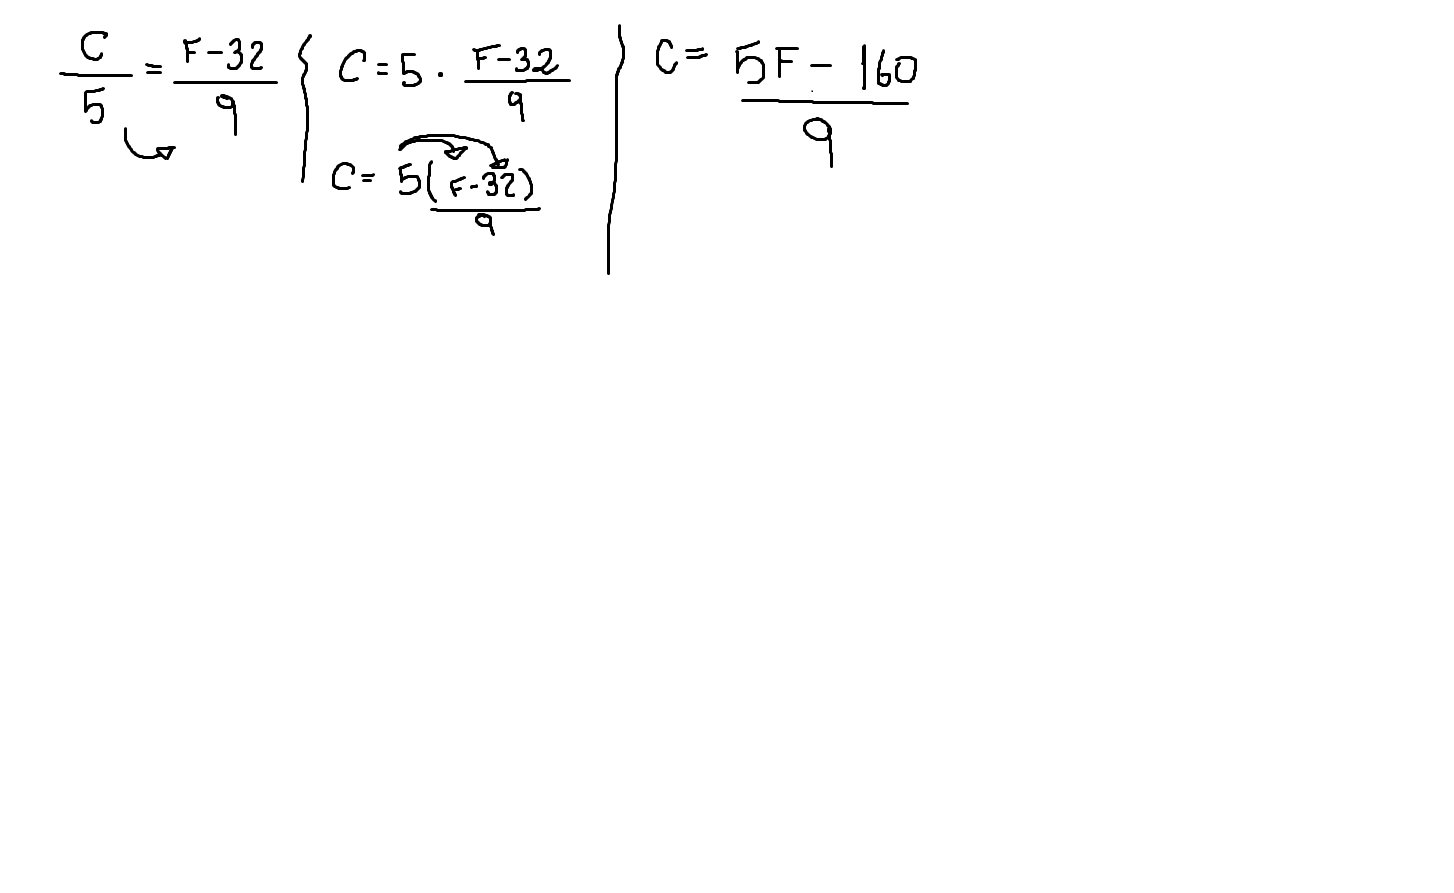 C/5 = F-32/9
C = 5 · F-32/9
C = 5(F-32)/9
C = 5F - 160/9